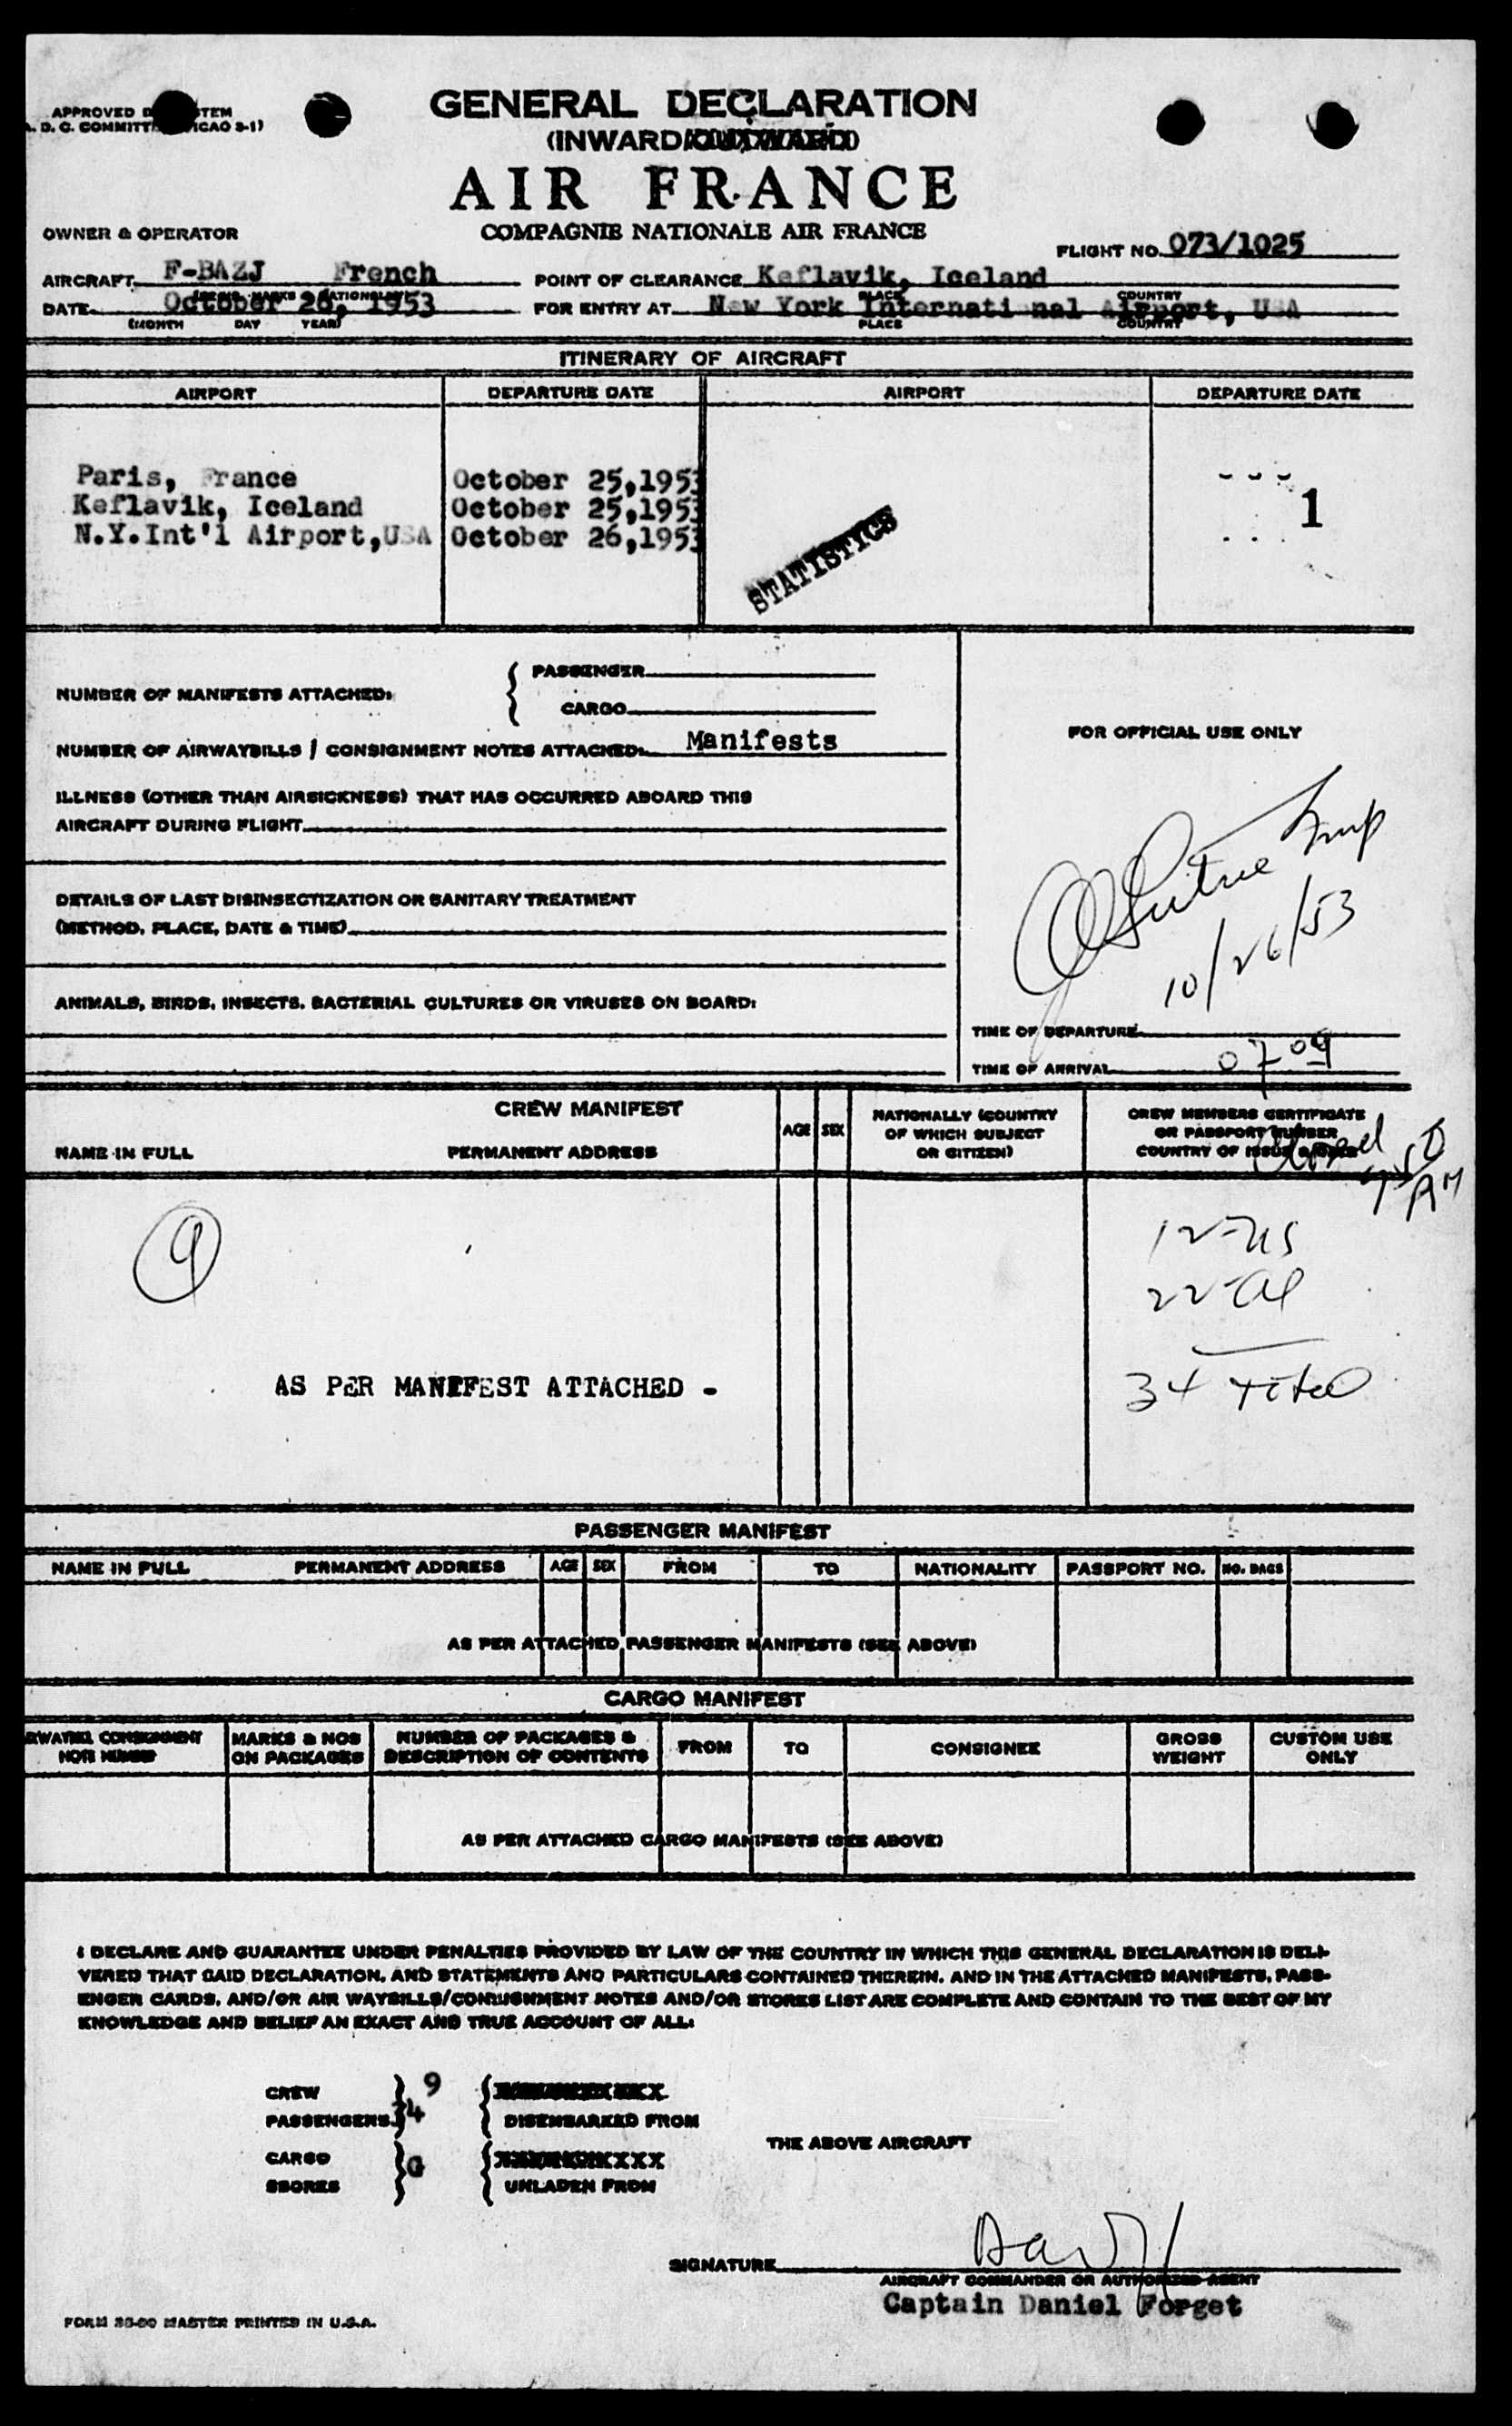 APPROVED
GENERAL DECLARATION
(INWARD
AIR FRANCE
COMPAGNIE NATIONALE AIR FRANCE
OWNER & OPERATOR
FLIGHT NO. 073/1025
AIRCRAFT F-BAZJ French
POINT OF CLEARANCE Keflavik, Iceland
PLACE COUNTRY
DATE October 26, 1953
FOR ENTRY AT New York International Airport, USA
(MONTH DAY YEAR)
PLACE COUNTRY
ITINERARY OF AIRCRAFT
AIRPORT DEPARTURE DATE AIRPORT DEPARTURE DATE
Paris, France October 25,1953
Keflavik, Iceland October 25,1953
1
N.Y.Int'l Airport,USA October 26,1953
STATISTICS
NUMBER OF MANIFESTS ATTACHED:
PASSENGER
CARGO
NUMBER OF AIRWAYBILLS / CONSIGNMENT NOTES ATTACHED: Manifests
FOR OFFICIAL USE ONLY
ILLNESS (OTHER THAN AIRSICKNESS) THAT HAS OCCURRED ABOARD THIS
AIRCRAFT DURING FLIGHT
DETAILS OF LAST DISINSECTIZATION OR SANITARY TREATMENT
(METHOD, PLACE, DATE & TIME)
10/26/53
ANIMALS, BIRDS, INSECTS, BACTERIAL CULTURES OR VIRUSES ON BOARD:
TIME OF DEPARTURE
TIME OF ARRIVAL 0709
CREW MANIFEST
NAME IN FULL PERMANENT ADDRESS AGE SEX
NATIONALLY (COUNTRY
OF WHICH SUBJECT
OR CITIZEN)
CREW MEMBERS CERTIFICATE
OR PASSPORT NUMBER
COUNTRY OF ISSUE
9
12-US
22-Al
34 Total
AS PER MANIFEST ATTACHED -
PASSENGER MANIFEST
NAME IN FULL PERMANENT ADDRESS AGE SEX FROM TO NATIONALITY PASSPORT NO. NO. BAGS
AS PER ATTACHED PASSENGER MANIFESTS (SEE ABOVE)
CARGO MANIFEST
MARKS & NOS
ON PACKAGES
NUMBER OF PACKAGES &
DESCRIPTION OF CONTENTS
FROM TO CONSIGNEE
GROSS
WEIGHT
CUSTOM USE
ONLY
AS PER ATTACHED CARGO MANIFESTS (SEE ABOVE)
I DECLARE AND GUARANTEE UNDER PENALTIES PROVIDED BY LAW OF THE COUNTRY IN WHICH THIS GENERAL DECLARATION IS DELI-
VERED THAT SAID DECLARATION, AND STATEMENTS AND PARTICULARS CONTAINED THEREIN, AND IN THE ATTACHED MANIFESTS, PASS-
ENGER CARDS, AND/OR AIR WAYBILLS/CONSIGNMENT NOTES AND/OR STORES LIST ARE COMPLETE AND CONTAIN TO THE BEST OF MY
KNOWLEDGE AND BELIEF AN EXACT AND TRUE ACCOUNT OF ALL:
CREW 9
PASSENGERS 34 DISEMBARKED FROM
THE ABOVE AIRCRAFT
CARGO
STORES UNLADEN FROM
SIGNATURE
AIRCRAFT COMMANDER OR AUTHORIZED AGENT
Captain Daniel Forget
MASTER PRINTED IN U.S.A.